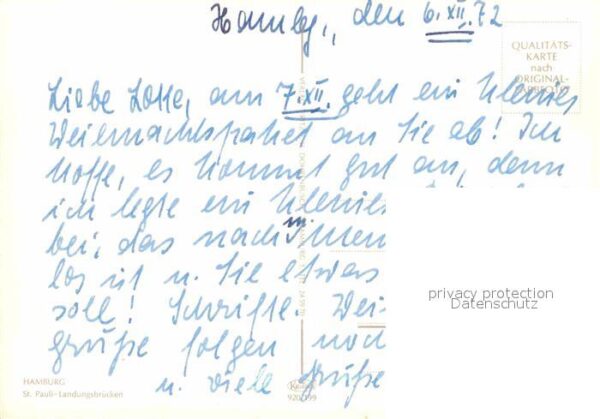 Hambg., den 6.XII.72
QUALITÄTS-
KARTE
nach
ORIGINAL-
FARBFOTO
Liebe Lotte, am 7.XII. geht ein kleines
Weihnachtspaket an Sie ab! Ich
hoffe, es kommt gut an, denn
ich legte ein kleines
bei, das nach
los ist u. Sie etwas
soll! Schriftl. Wei-
grüße folgen noch
u. viele Grüße
privacy protection
Datenschutz
HAMBURG
St. Pauli-Landungsbrücken
Krüger
920/199